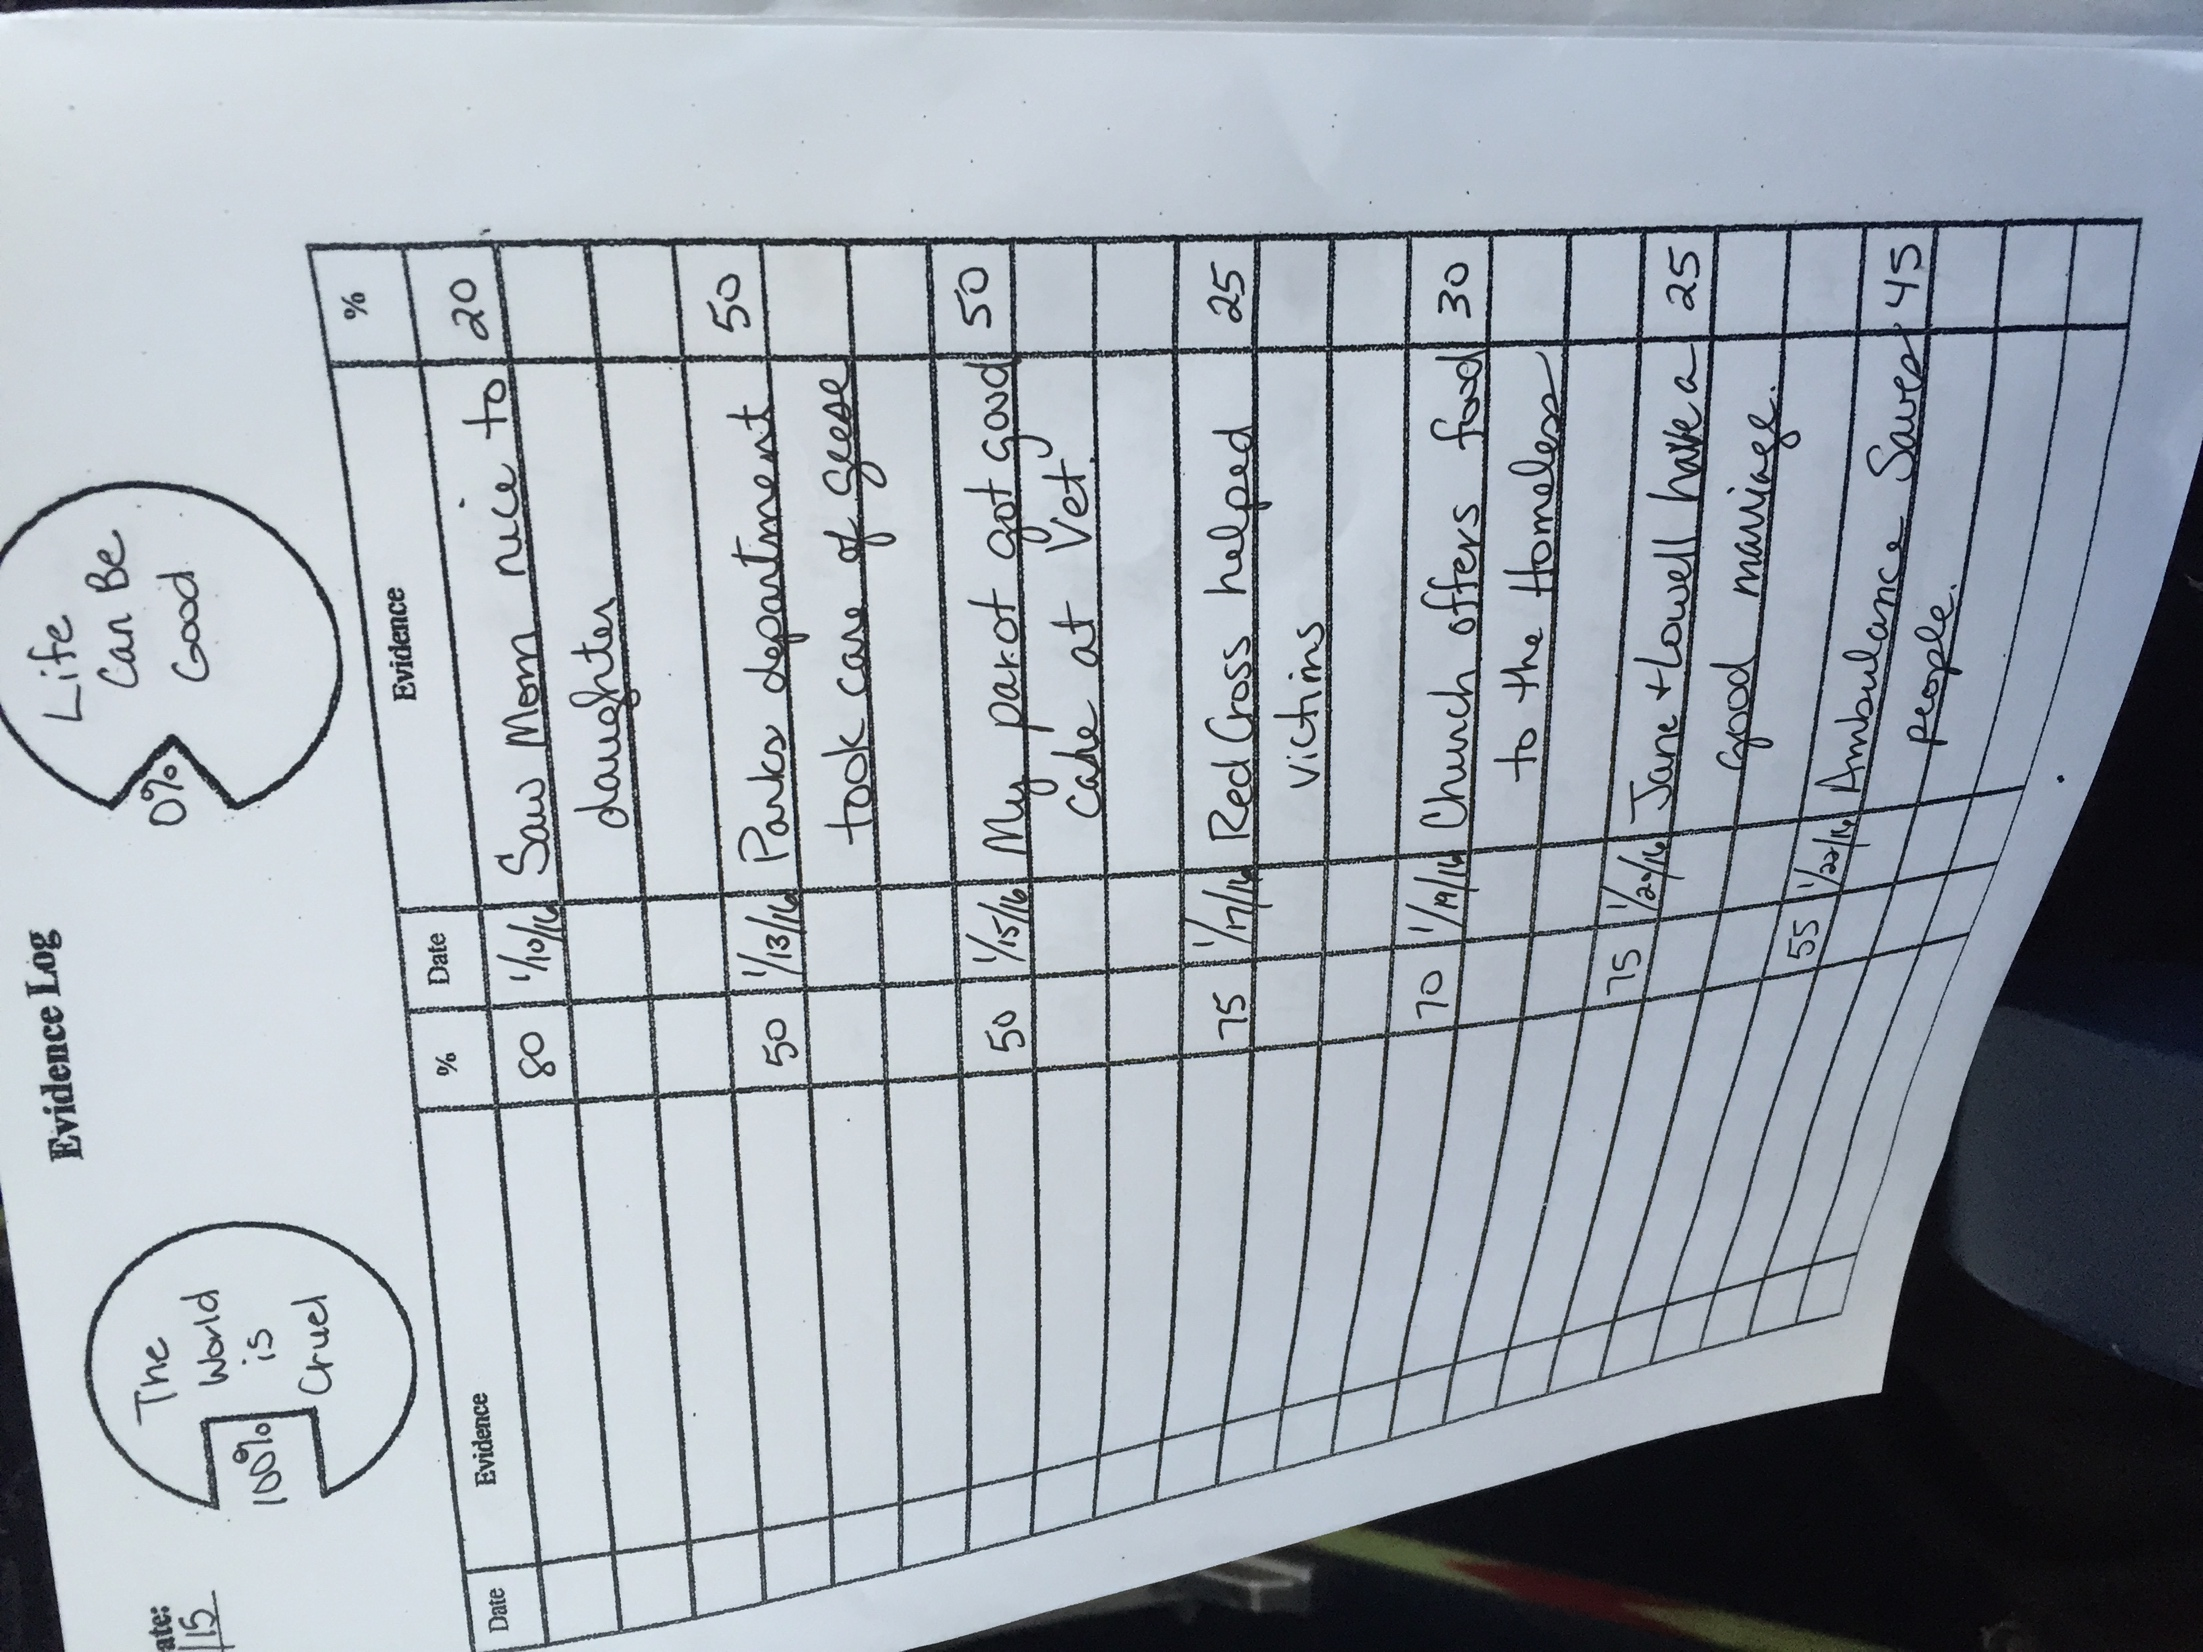 ate:
/15
Evidence Log
The
World
is
Cruel
100%
Life
Can Be
Good
0%
Date Evidence % Date Evidence %
80 1/10/16 Saw Mom nice to 20
daughter
50 1/13/16 Parks department 50
took care of geese
50 1/15/16 My parrot got good 50
care at Vet.
75 1/17/16 Red Cross helped 25
victims
70 1/19/16 Church offers food 30
to the Homeless
75 1/20/16 Jane + Lowell have a 25
good marriage.
55 1/22/16 Ambulance Saves 45
people.